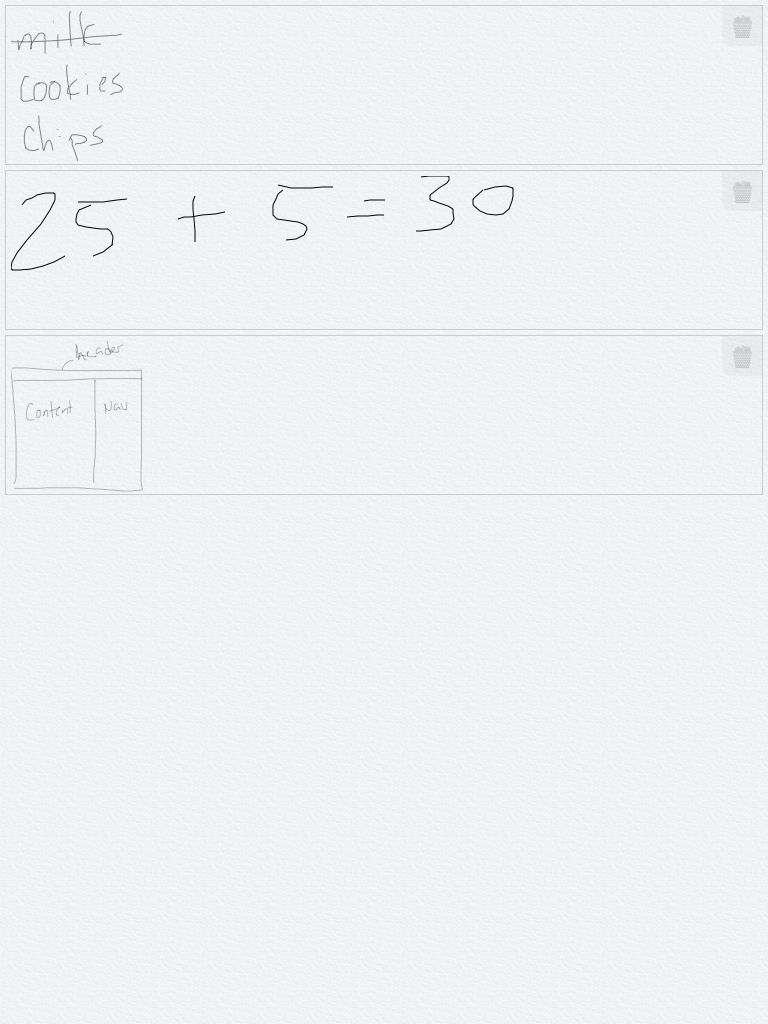 milk
cookies
chips
25 + 5 = 30
header
Content Nav